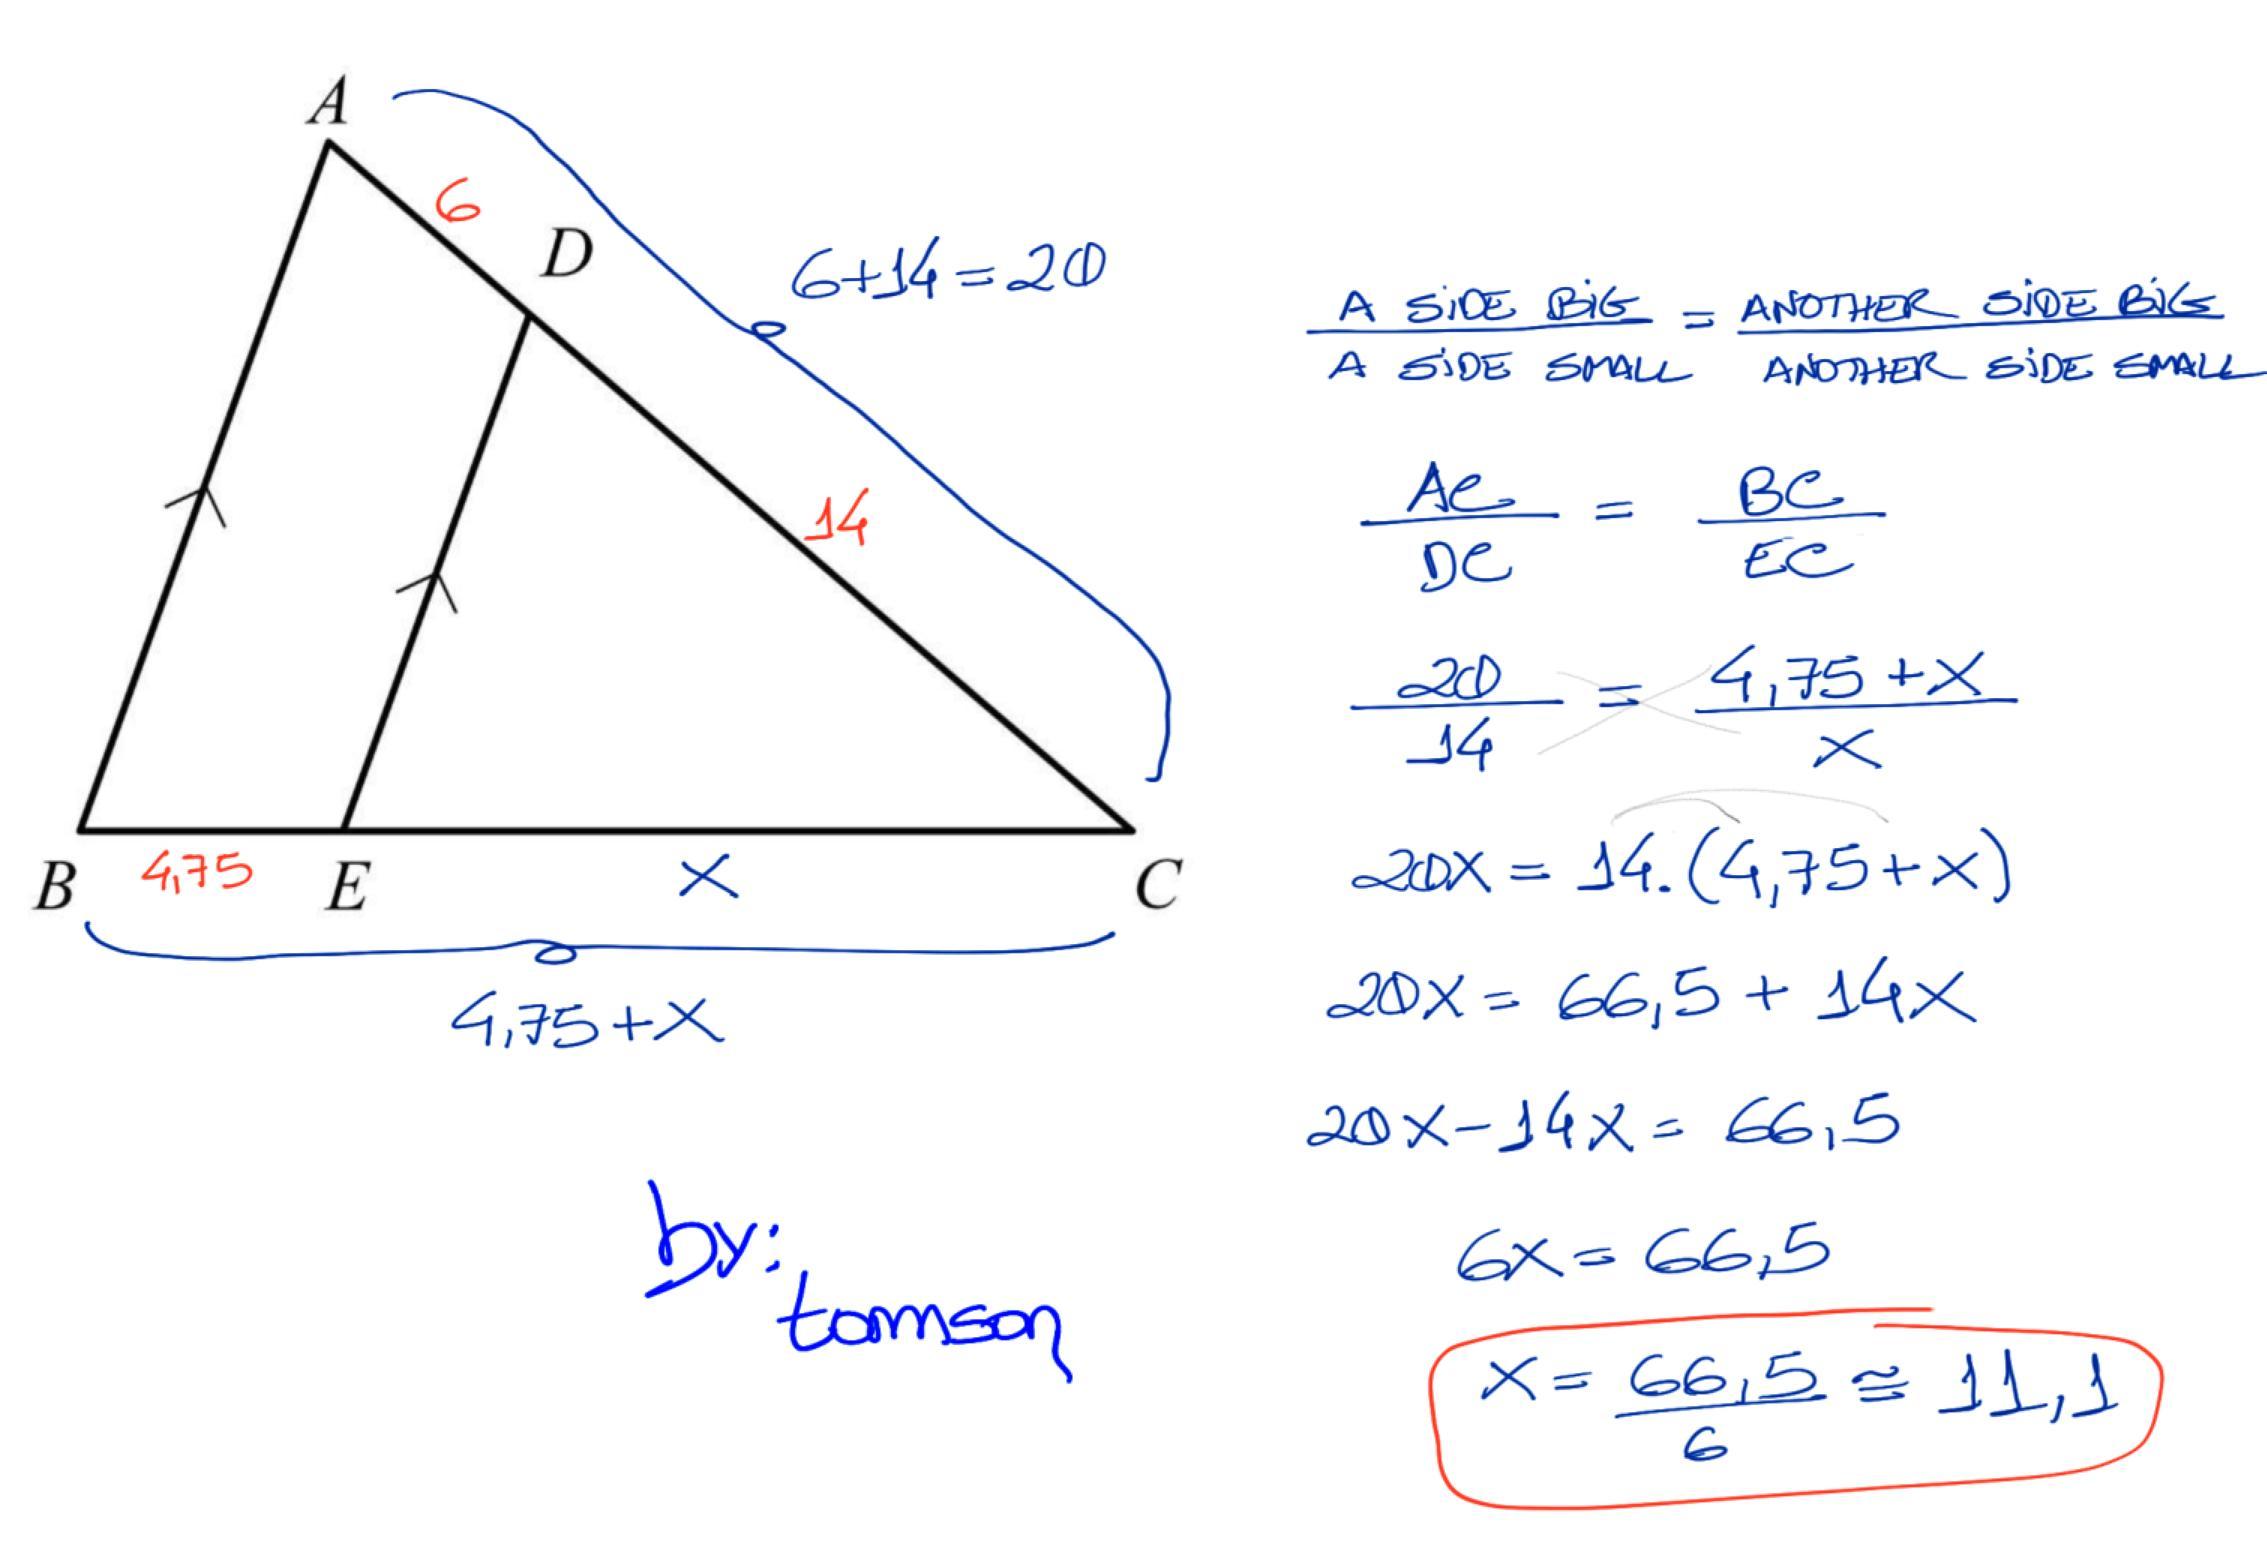 A
6
D
6+14=20
14
B 4,75 E x C
4,75+x
by:
tomson
A SiDE BiG = ANOTHER SiDE BiG
A SiDE SMALL ANOTHER SiDE SMALL
AC = BC
DC EC
20 = 4,75+x
14 x
20x = 14.(4,75+x)
20x = 66,5 + 14x
20x-14x = 66,5
6x = 66,5
x = 66,5 ≅ 11,1
6